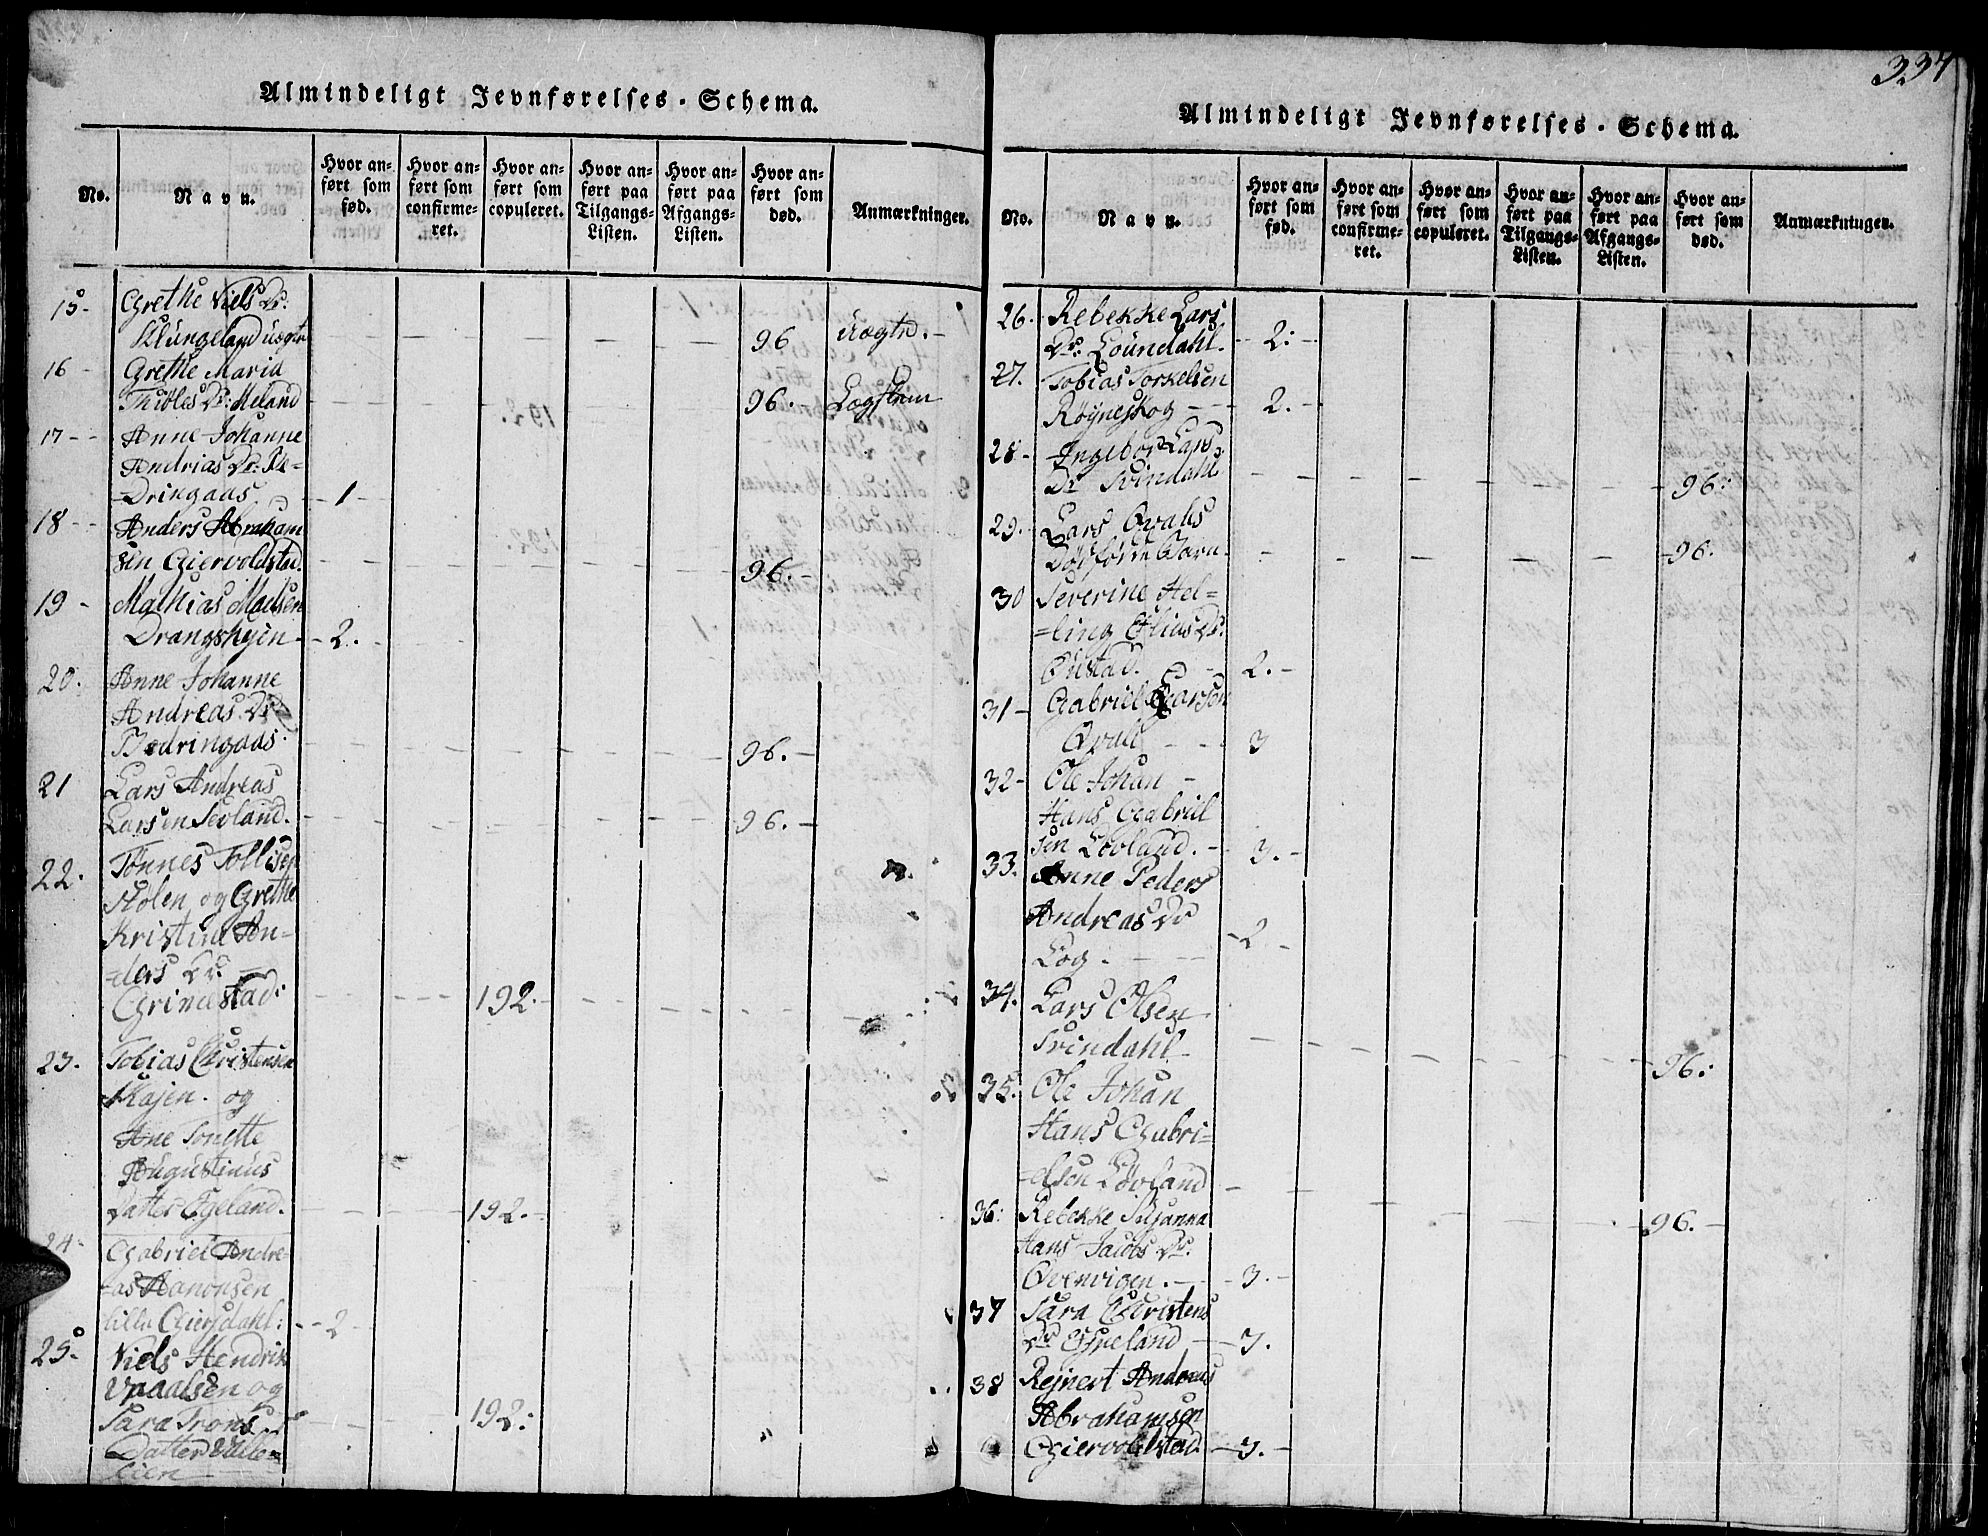 337
Almindeligt Jevnførelses-Schema.
No.
Navn.
Hvor anført som fød.
Hvor anført som confirmeret.
Hvor anført som copuleret.
Hvor anført paa Tilgangs-Listen.
Hvor anført paa Afgangs-Listen.
Hvor anført som død.
Anmærkninger.
15- Grethe Niels Dr:
Klungeland uægte 96 Uægte.
16- Grethe Maria
Thibles Dr: Meland 96.- Lægstrm
17-- Anne Johanne
Andrias Dr: Be-
-dringaas. 1-
18-- Anders Abraham
sen Giervoldstad. 96.-
19- Mathias Madsen
Drangshejen -- 2.
20. Anne Johanne
Andreas Dr
Bedringaas. 96.-
21 Lars Andreas
Larsen Sevland. 96.-
22. Tønnes Tollisen
Stolen og Grethe
Kristine An-
-ders Dr. -
Grimestad: 192.-
23. Tobias Christensen
Skajen. og
Ane Tonette
Augustinus
Datter Egeland. 192.-
24- Gabriel Andre-
-as Aanonsen
lille Giersdahl: -- 2
25- Niels Hendrik
og
Sara Trons 192:
Datter
Almindeligt Jevnførelses-Schema.
No.
Navn.
Hvor anført som fød.
Hvor anført som confirmeret.
Hvor anført som copuleret.
Hvor anført paa Tilgangs-Listen.
Hvor anført paa Afgangs-Listen.
Hvor anført som død.
Anmærkninger.
26. Rebekke Lars
Dr: Loundahl. - 2:-
27. Tobias Torkelsen
Røyneskog -- 2.-
28- Ingebor Lars
Dr Svindahl 96:
29. Lars Qvals
Dødførte Barn 96.
30 Severine Hel-
-ling Elias Dr:
Øustad. 2.-
31- Gabriel Larsen
Qvall -- 3
32- Ole Johan -
Hans Gabriel
sen Løvland. - 3.-
33. Anne Peders
Andreas Dr
Log. - 2 -
34. Lars Olsen
Svindahl- 96.
35. Ole Johan
Hans Gabri-
-elsen Løvland - 96.-
36: Rebekke Susanna
Hans Jacobs Dr:
Qvenvigen. - 3.-
37 Sara Christens
Dr Espeland - 3.
38 Rejnert Andreas
Abrahamsen
Giervoldstad - 3.-